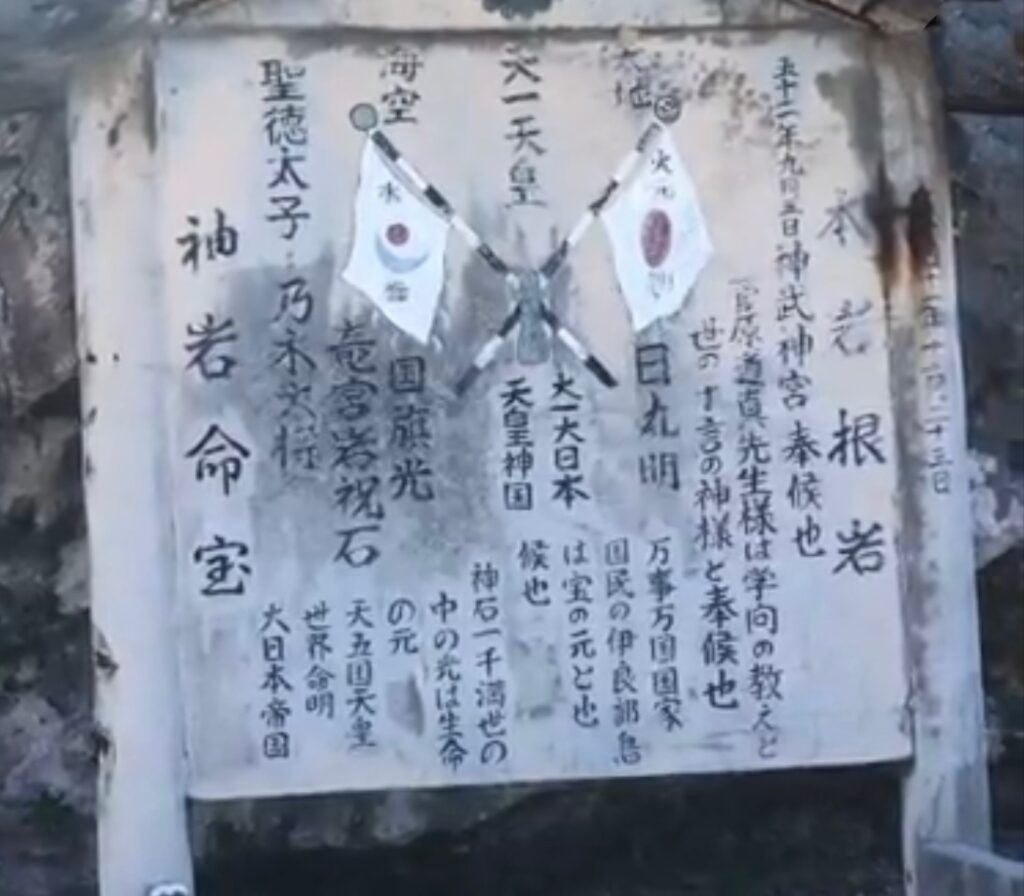 本岩根岩
五十一年九月五日神武神宮奉候也
菅原道真先生様は学向の教えと
世の十言の神様と奉候也
大地
火元
日丸明
万事万国国家
国民の伊良部島
は宝の元と也
候也
大一天皇
大一大日本
天皇神国
神石一千満世の
中の光は生命
の元
天五国天皇
世界命明
大日本帝国
海空
水
国旗光
竜宮岩祝石
聖徳太子
乃木大将
神岩命宝